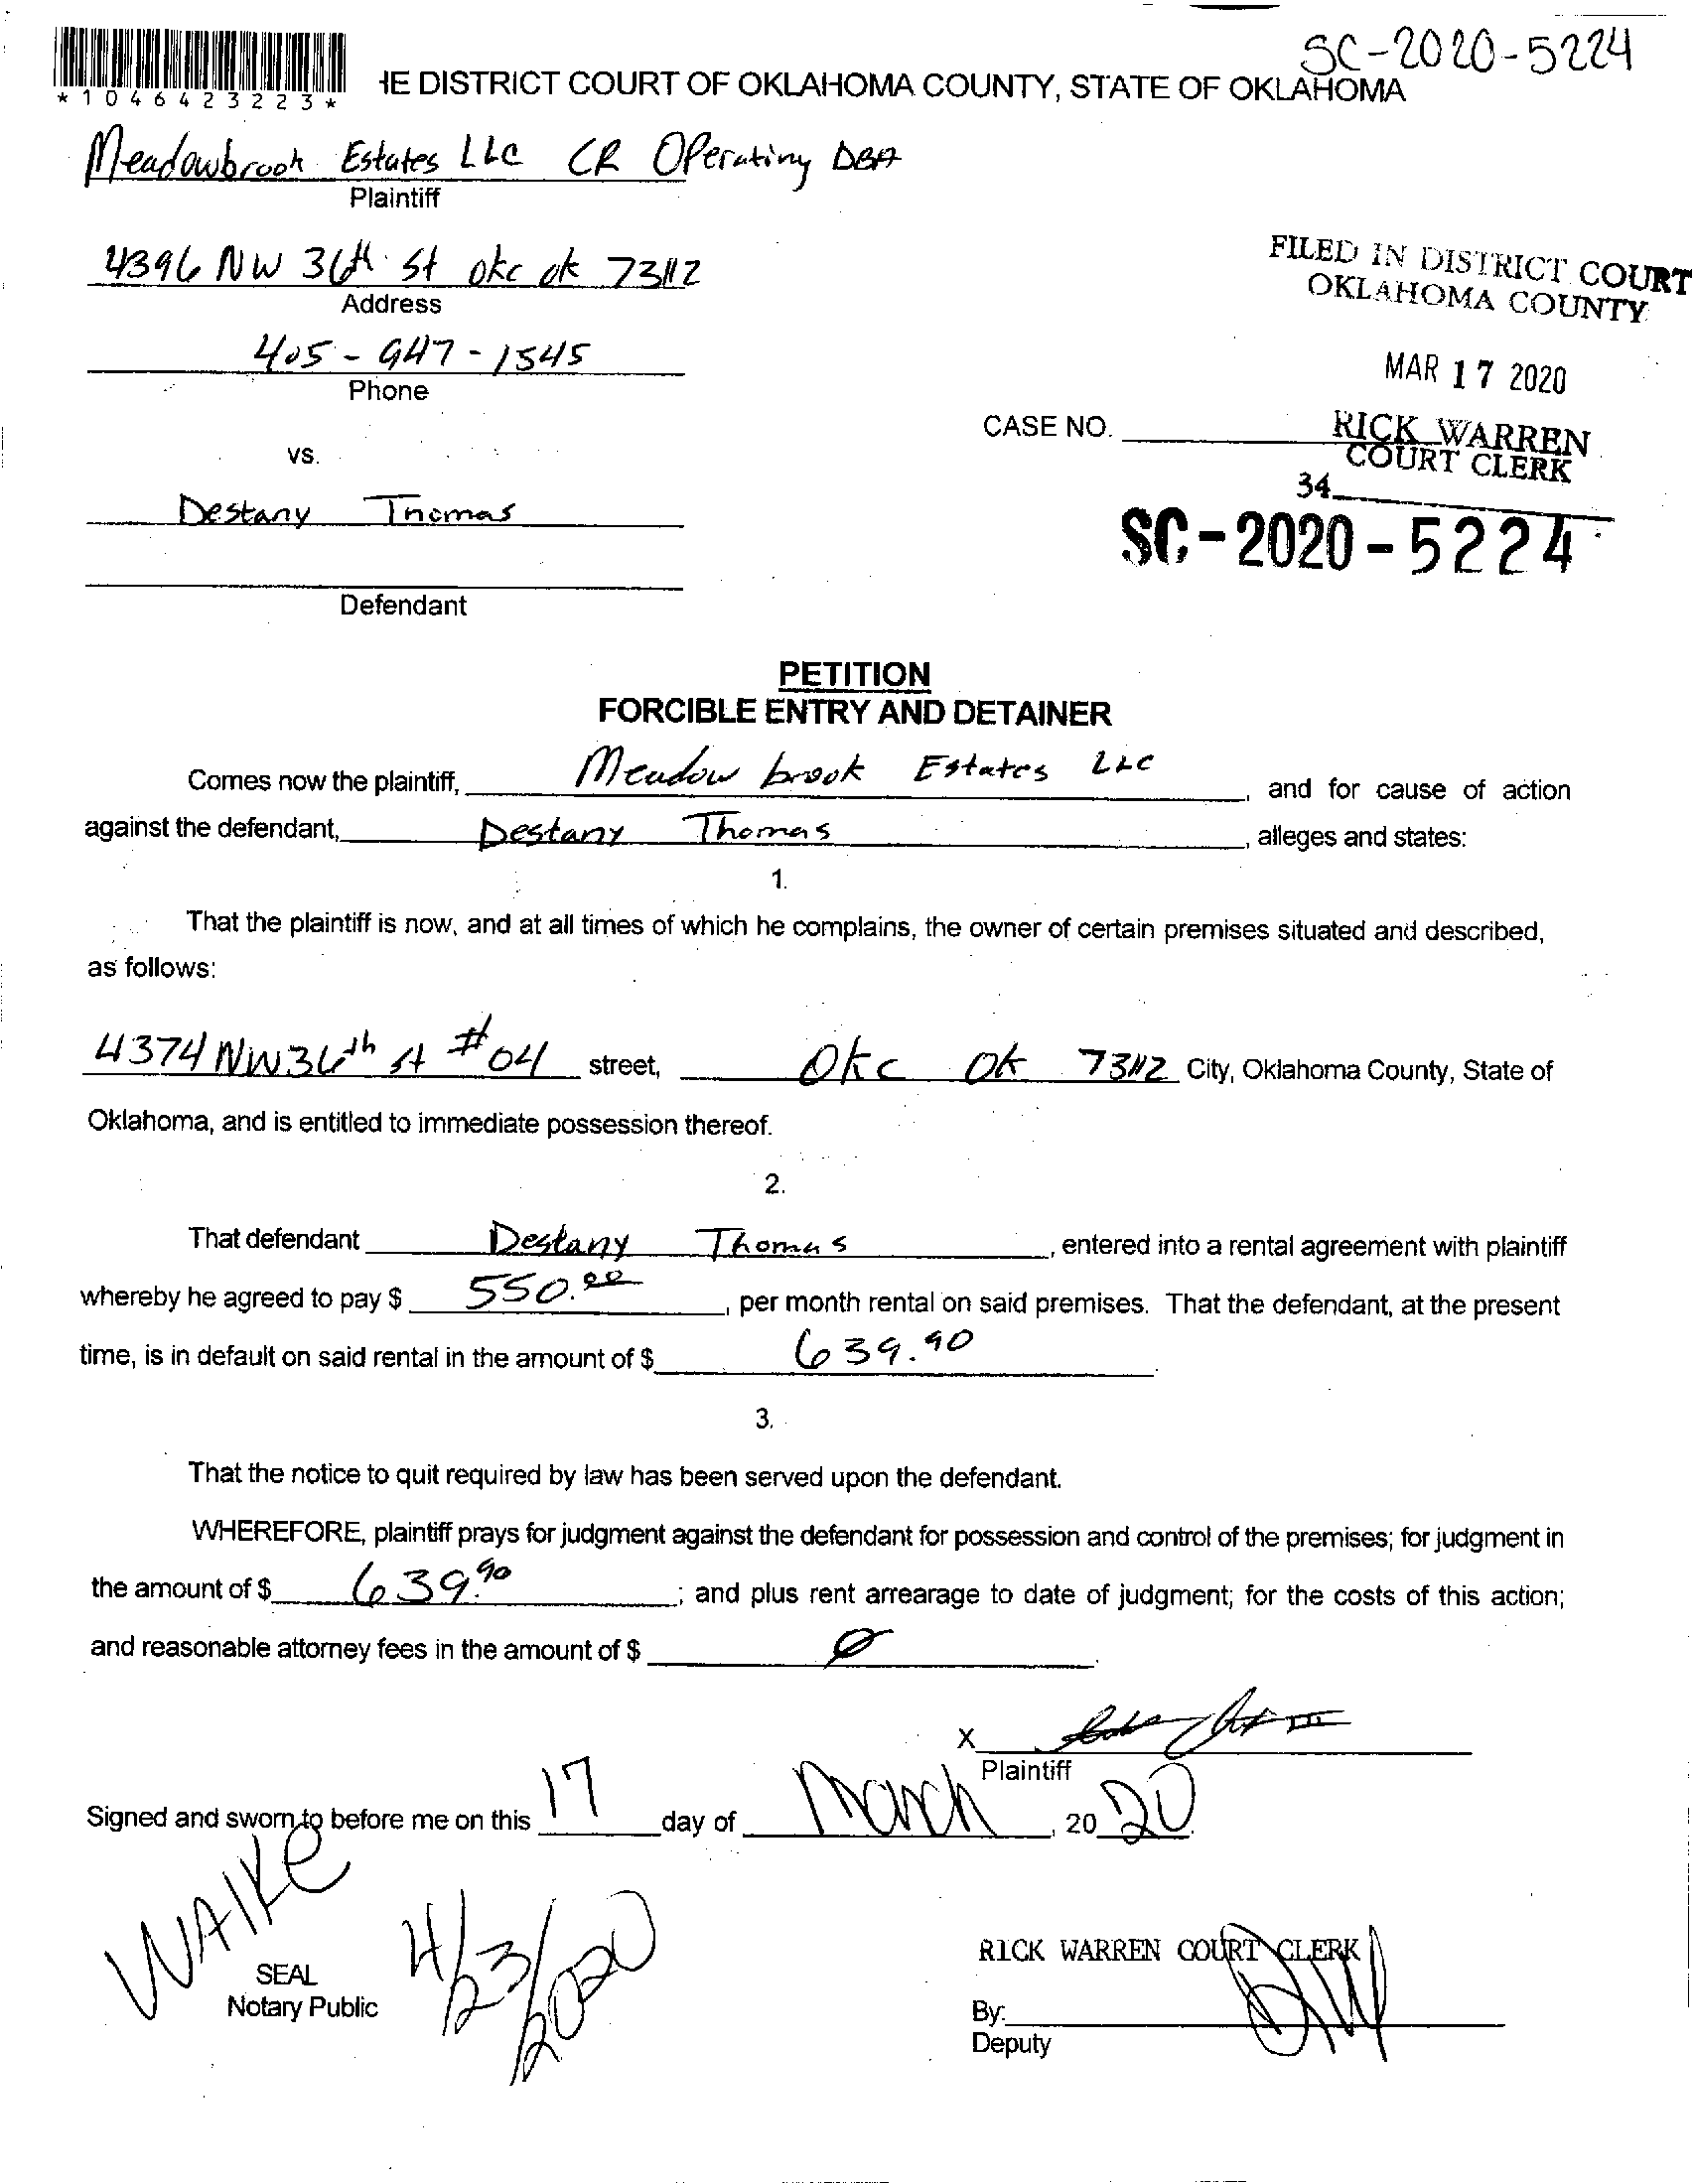 SC-2020-5224
*1046423223*
HE DISTRICT COURT OF OKLAHOMA COUNTY, STATE OF OKLAHOMA
Meadowbrook Estates LLC CR Operating DBA
Plaintiff
4396 NW 36th St okc ok 73112
Address
FILED IN DISTRICT COURT
OKLAHOMA COUNTY
405-947-1545
Phone
MAR 17 2020
CASE NO.
RICK WARREN
COURT CLERK
vs.
34
Destany Thomas
SC-2020-5224
Defendant
PETITION
FORCIBLE ENTRY AND DETAINER
Comes now the plaintiff, Meadow brook Estates LLC and for cause of action
against the defendant, Destany Thomas, alleges and states:
1.
That the plaintiff is now, and at all times of which he complains, the owner of certain premises situated and described,
as follows:
4374 NW 36th st #04 street, Okc Ok 73112 City, Oklahoma County, State of
Oklahoma, and is entitled to immediate possession thereof.
2.
That defendant Destany Thomas, entered into a rental agreement with plaintiff
whereby he agreed to pay $ 550.00, per month rental on said premises. That the defendant, at the present
time, is in default on said rental in the amount of $ 639.90.
3.
That the notice to quit required by law has been served upon the defendant.
WHEREFORE, plaintiff prays for judgment against the defendant for possession and control of the premises; for judgment in
the amount of $ 639.90; and plus rent arrearage to date of judgment; for the costs of this action;
and reasonable attorney fees in the amount of $ 0.
X
Plaintiff
Signed and sworn to before me on this 17 day of March, 20 20.
WAIKE
4/23/2020
SEAL
Notary Public
RICK WARREN COURT CLERK
By:
Deputy